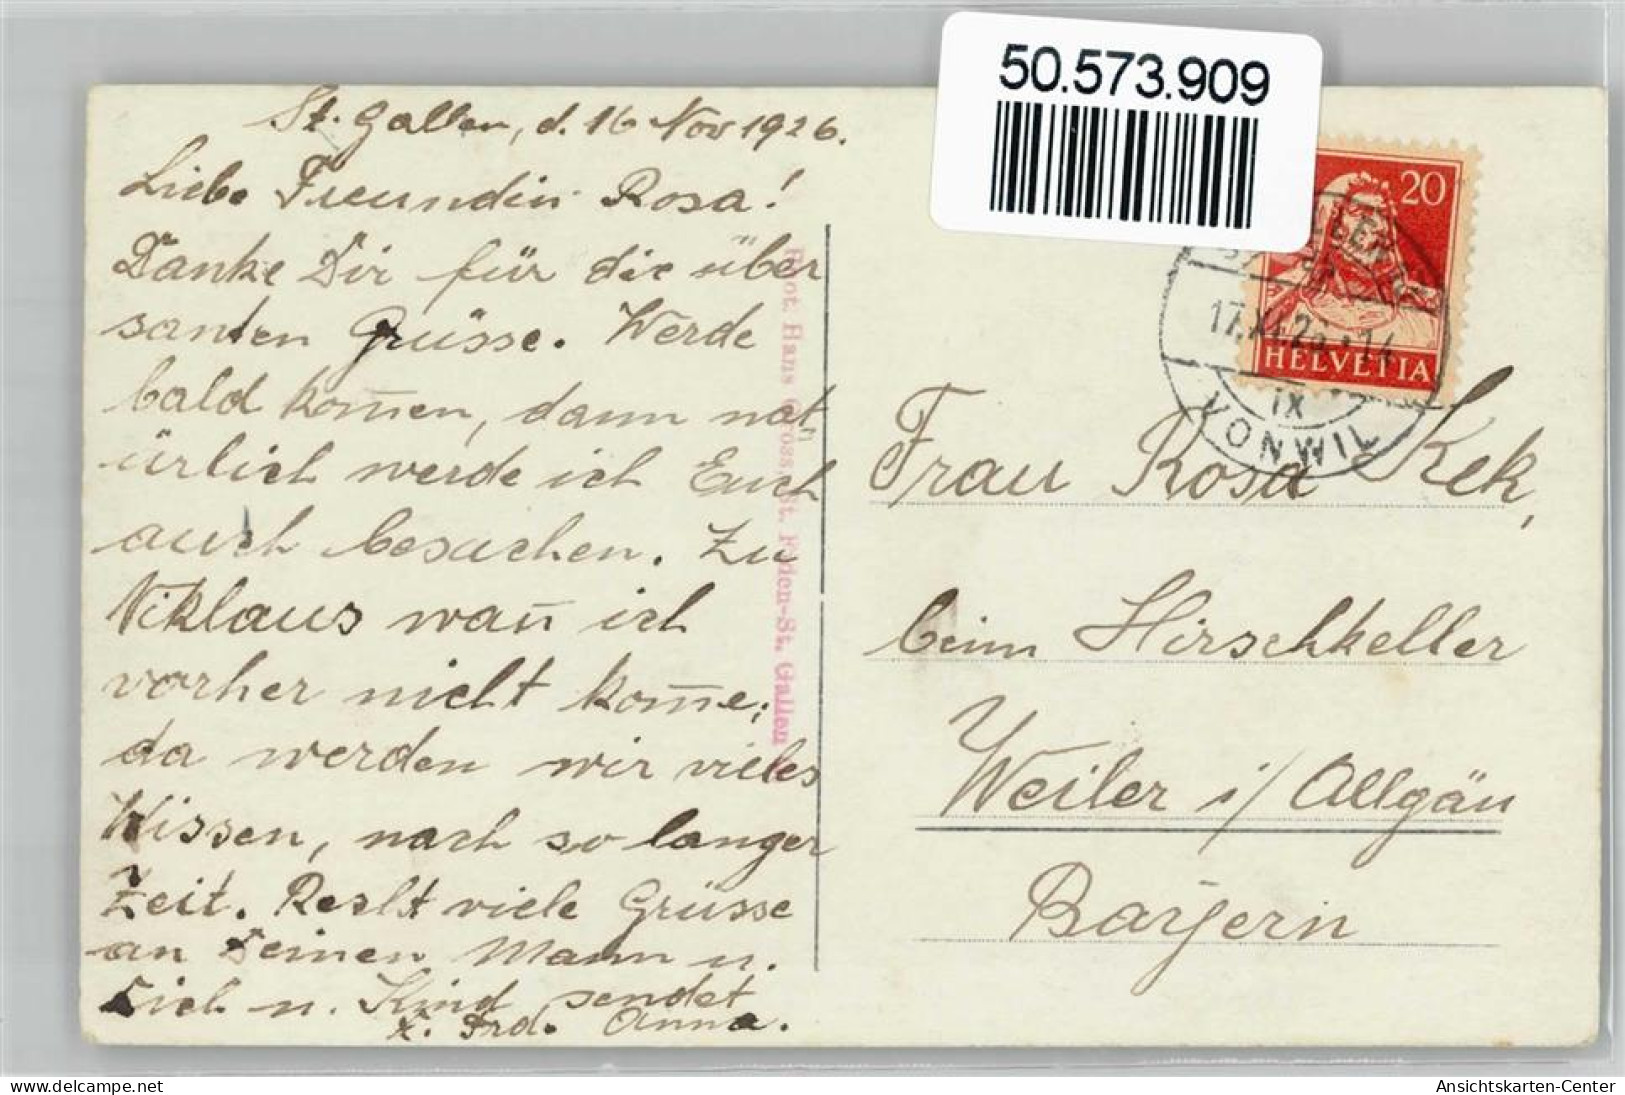 50.573.909
St. Gallen, d. 16 Nov 1926.
Liebe Freundin Rosa!
Danke Dir für die über
santen Grüsse. Werde
bald kom̅en, dann nat
ürlich werde ich Euch
auch besuchen. Zu
Niklaus wan̅ ich
vorher nicht kom̅e;
da werden wir vieles
Wissen, nach so langer
Zeit. Recht viele Grüsse
an Deinen Mann u.
Dich u. Kind sendet
Frd. Anna.
Phot. Hans Gross, St. Fiden-St. Gallen
20
HELVETIA
17.XI.26
IX
VONWIL
Frau Rosa Kek,
beim Hirschkeller
Weiler i/ Allgäu
Bayern
delcampe.net
Ansichtskarten-Center